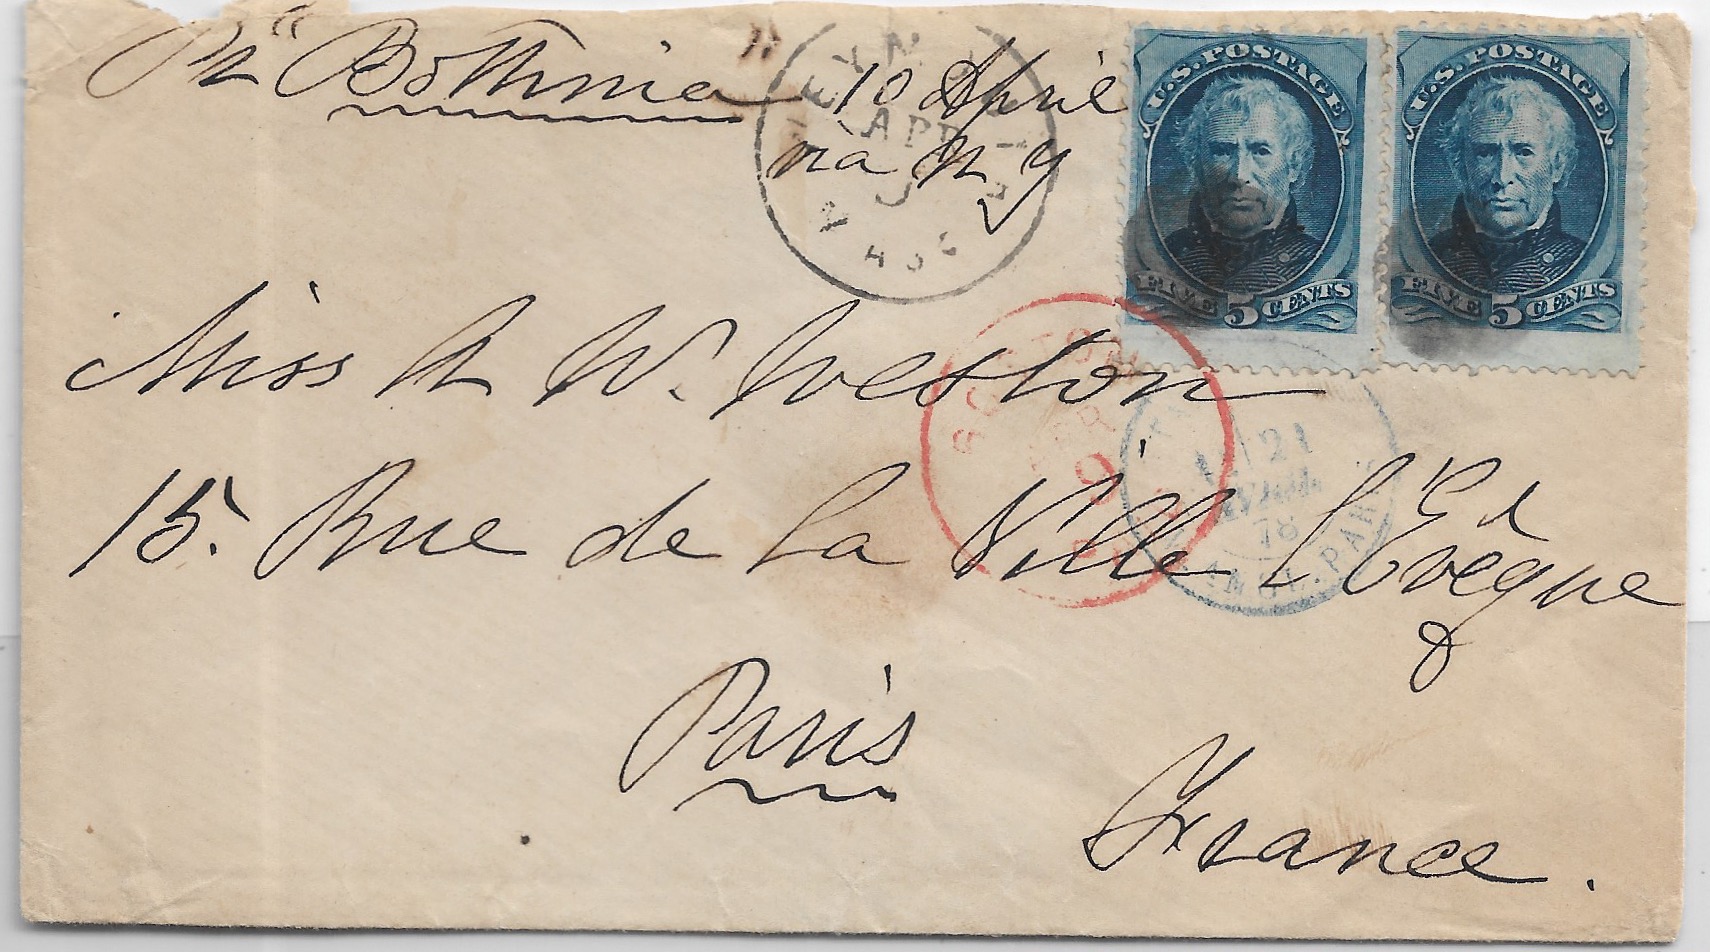 Per "Bothnia" 10 April
via N Y
U.S. POSTAGE
FIVE 5 CENTS
U.S. POSTAGE
FIVE 5 CENTS
APR
MASS
BOSTON
APR
9
21
78
PARIS
Miss A W. Weston
15. Rue de la Ville L'Evêque
Paris
France.